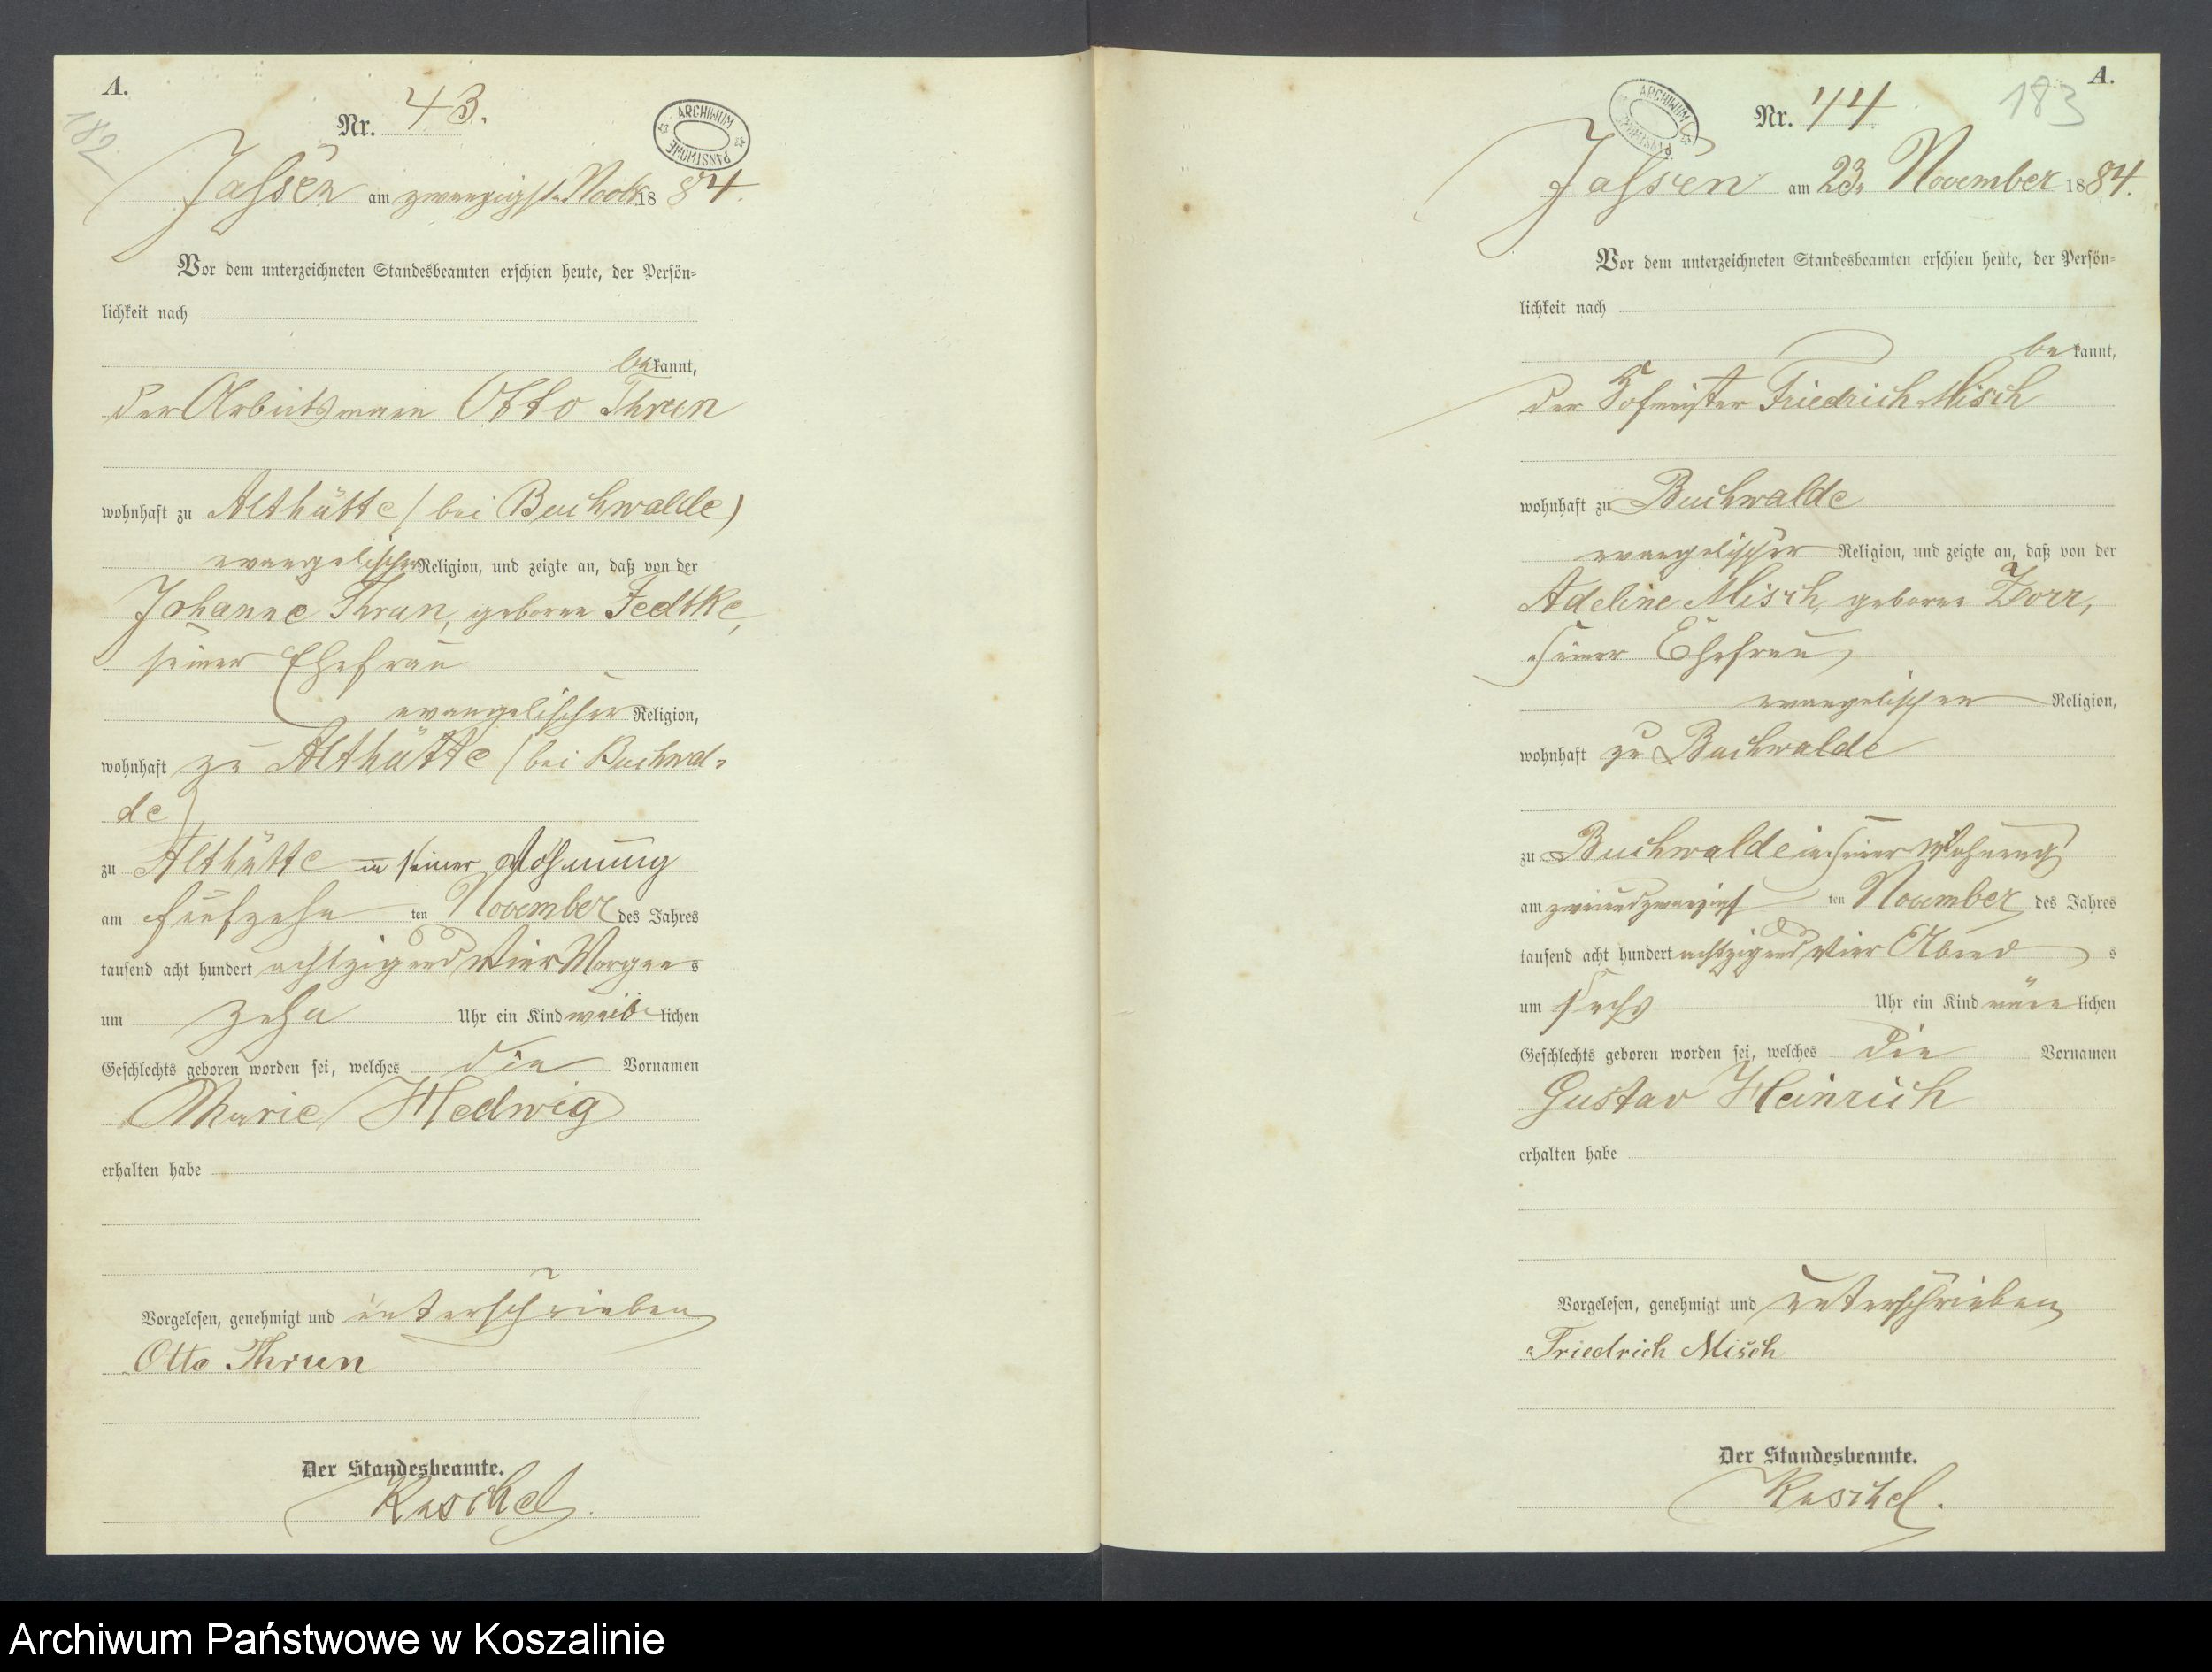 A.
182
Nr. 43.
ARCHIWUM PAŃSTWOWE
Jassen am zwanzigsten Novbr. 1884.
Vor dem unterzeichneten Standesbeamten erschien heute, der Persön=
lichkeit nach
bekannt,
der Arbeitsmann Otto Thrun
wohnhaft zu Althütte (bei Buchwalde)
evangelischer Religion, und zeigte an, daß von der
Johanne Thrun, geborne Fedtke,
seiner Ehefrau
evangelischer Religion,
wohnhaft zu Althütte (bei Buchwal=
de)
zu Althütte in seiner Wohnung
am fünfzehnten November des Jahres
tausend acht hundert achtzig und vier Morgens
um zehn Uhr ein Kind weiblichen
Geschlechts geboren worden sei, welches die Vornamen
Marie Hedwig
erhalten habe
Vorgelesen, genehmigt und unterschrieben
Otto Thrun
Der Standesbeamte.
Raschel.
A.
183
Nr. 44
ARCHIWUM PAŃSTWOWE
Jassen am 23. November 1884.
Vor dem unterzeichneten Standesbeamten erschien heute, der Persön=
lichkeit nach
bekannt,
der Hofmeister Friedrich Misch
wohnhaft zu Buchwalde
evangelischer Religion, und zeigte an, daß von der
Adeline Misch, geborne Zorr,
seiner Ehefrau,
evangelischen Religion,
wohnhaft zu Buchwalde
zu Buchwalde in seiner Wohnung
am zweiundzwanzigsten November des Jahres
tausend acht hundert achtzig und vier Abends
um sechs Uhr ein Kind männlichen
Geschlechts geboren worden sei, welches die Vornamen
Gustav Heinrich
erhalten habe
Vorgelesen, genehmigt und unterschrieben
Friedrich Misch
Der Standesbeamte.
Raschel.
Archiwum Państwowe w Koszalinie